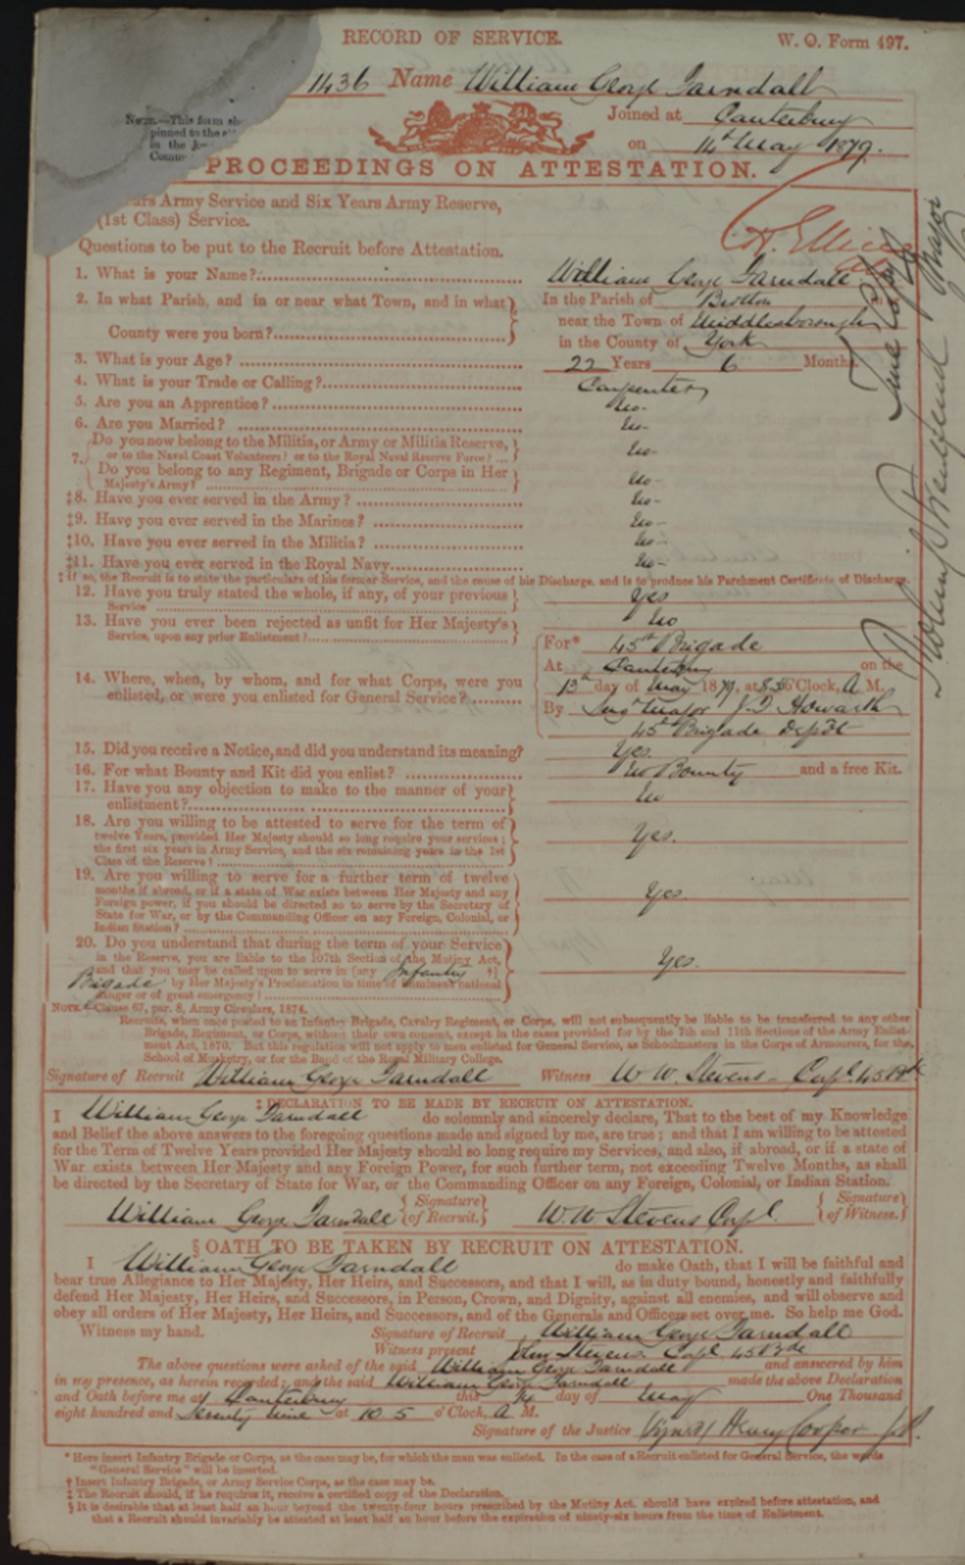 RECORD OF SERVICE.
W. O. Form 497.
1436 Name William George Farndall
Joined at Canterbury
on 14th May 1879.
NOTE.—This form sh
pinned to the
in the
Coun
PROCEEDINGS ON ATTESTATION.
ars Army Service and Six Years Army Reserve,
(1st Class) Service.
Questions to be put to the Recruit before Attestation.
1. What is your Name?
William George Farndall
2. In what Parish, and in or near what Town, and in what
County were you born?
In the Parish of Brotton
near the Town of Middlesborough
in the County of York
3. What is your Age?
22 Years 6 Months.
4. What is your Trade or Calling?
Carpenter
5. Are you an Apprentice?
No-
6. Are you Married?
No-
7. Do you now belong to the Militia, or Army or Militia Reserve,
or to the Naval Coast Volunteers? or to the Royal Naval Reserve Force?
No-
Do you belong to any Regiment, Brigade or Corps in Her
Majesty's Army?
No-
‡8. Have you ever served in the Army?
No-
‡9. Have you ever served in the Marines?
No-
‡10. Have you ever served in the Militia?
No-
‡11. Have you ever served in the Royal Navy
No-
‡ If so, the Recruit is to state the particulars of his former Service, and the cause of his Discharge, and is to produce his Parchment Certificate of Discharge.
12. Have you truly stated the whole, if any, of your previous
Service
Yes
13. Have you ever been rejected as unfit for Her Majesty's
Service, upon any prior Enlistment?
No
14. Where, when, by whom, and for what Corps, were you
enlisted, or were you enlisted for General Service?
For* 45th Brigade
At Canterbury on the
13th day of May 1879, at 8.30 O'Clock, A M.
By Sergt Major J. D. Howarth
45th Brigade Depôt
15. Did you receive a Notice, and did you understand its meaning?
Yes.
16. For what Bounty and Kit did you enlist?
No Bounty and a free Kit.
17. Have you any objection to make to the manner of your
enlistment?
No
18. Are you willing to be attested to serve for the term of
twelve Years, provided Her Majesty should so long require your services;
the first six years in Army Service, and the six remaining years in the 1st
Class of the Reserve?
Yes.
19. Are you willing to serve for a further term of twelve
months if abroad, or if a state of War exists between Her Majesty and any
Foreign power, if you should be directed so to serve by the Secretary of
State for War, or by the Commanding Officer on any Foreign, Colonial, or
Indian Station?
Yes.
20. Do you understand that during the term of your Service
in the Reserve, you are liable to the 107th Section of the Mutiny Act,
and that you may be called upon to serve in [any Infantry †]
Brigade by Her Majesty's Proclamation in time of imminent national
danger or of great emergency?
Yes.
NOTE.—Clause 67, par. 8, Army Circulars, 1874.
Recruits, when once posted to an Infantry Brigade, Cavalry Regiment, or Corps, will not subsequently be liable to be transferred to any other
Brigade, Regiment, or Corps, without their own consent, except in the cases provided for by the 7th and 11th Sections of the Army Enlist-
ment Act, 1870. But this regulation will not apply to men enlisted for General Service, as Schoolmasters in the Corps of Armourers, for the
School of Musketry, or for the Band of the Royal Military College.
Signature of Recruit William George Farndall Witness W W. Stevens - Corpl. 45 Bde
‡ DECLARATION TO BE MADE BY RECRUIT ON ATTESTATION.
I William George Farndall do solemnly and sincerely declare, That to the best of my Knowledge
and Belief the above answers to the foregoing questions made and signed by me, are true; and that I am willing to be attested
for the Term of Twelve Years provided Her Majesty should so long require my Services, and also, if abroad, or if a state of
War exists between Her Majesty and any Foreign Power, for such further term, not exceeding Twelve Months, as shall
be directed by the Secretary of State for War, or the Commanding Officer on any Foreign, Colonial, or Indian Station.
William George Farndall {Signature of Recruit.} W. W Stevens Corpl. {Signature of Witness.}
§ OATH TO BE TAKEN BY RECRUIT ON ATTESTATION.
I William George Farndall do make Oath, that I will be faithful and
bear true Allegiance to Her Majesty, Her Heirs, and Successors, and that I will, as in duty bound, honestly and faithfully
defend Her Majesty, Her Heirs, and Successors, in Person, Crown, and Dignity, against all enemies, and will observe and
obey all orders of Her Majesty, Her Heirs, and Successors, and of the Generals and Officers set over me. So help me God.
Witness my hand. Signature of Recruit William George Farndall
Witness present Stevens Corpl. 45 Bde
The above questions were asked of the said William George Farndall and answered by him
in my presence, as herein recorded; and the said William George Farndall made the above Declaration
and Oath before me at Canterbury this 14 day of May One Thousand
eight hundred and Seventy nine at 10.5 o'Clock, A M.
Signature of the Justice Henry Cooper
* Here insert Infantry Brigade or Corps, as the case may be, for which the man was enlisted. In the case of a Recruit enlisted for General Service, the words
"General Service" will be inserted.
† Insert Infantry Brigade, or Army Service Corps, as the case may be.
‡ The Recruit should, if he requires it, receive a certified copy of the Declaration.
§ It is desirable that at least half an hour beyond the twenty-four hours prescribed by the Mutiny Act. should have expired before attestation, and
that a Recruit should invariably be attested at least half an hour before the expiration of ninety-six hours from the time of Enlistment.
True Copy
Major